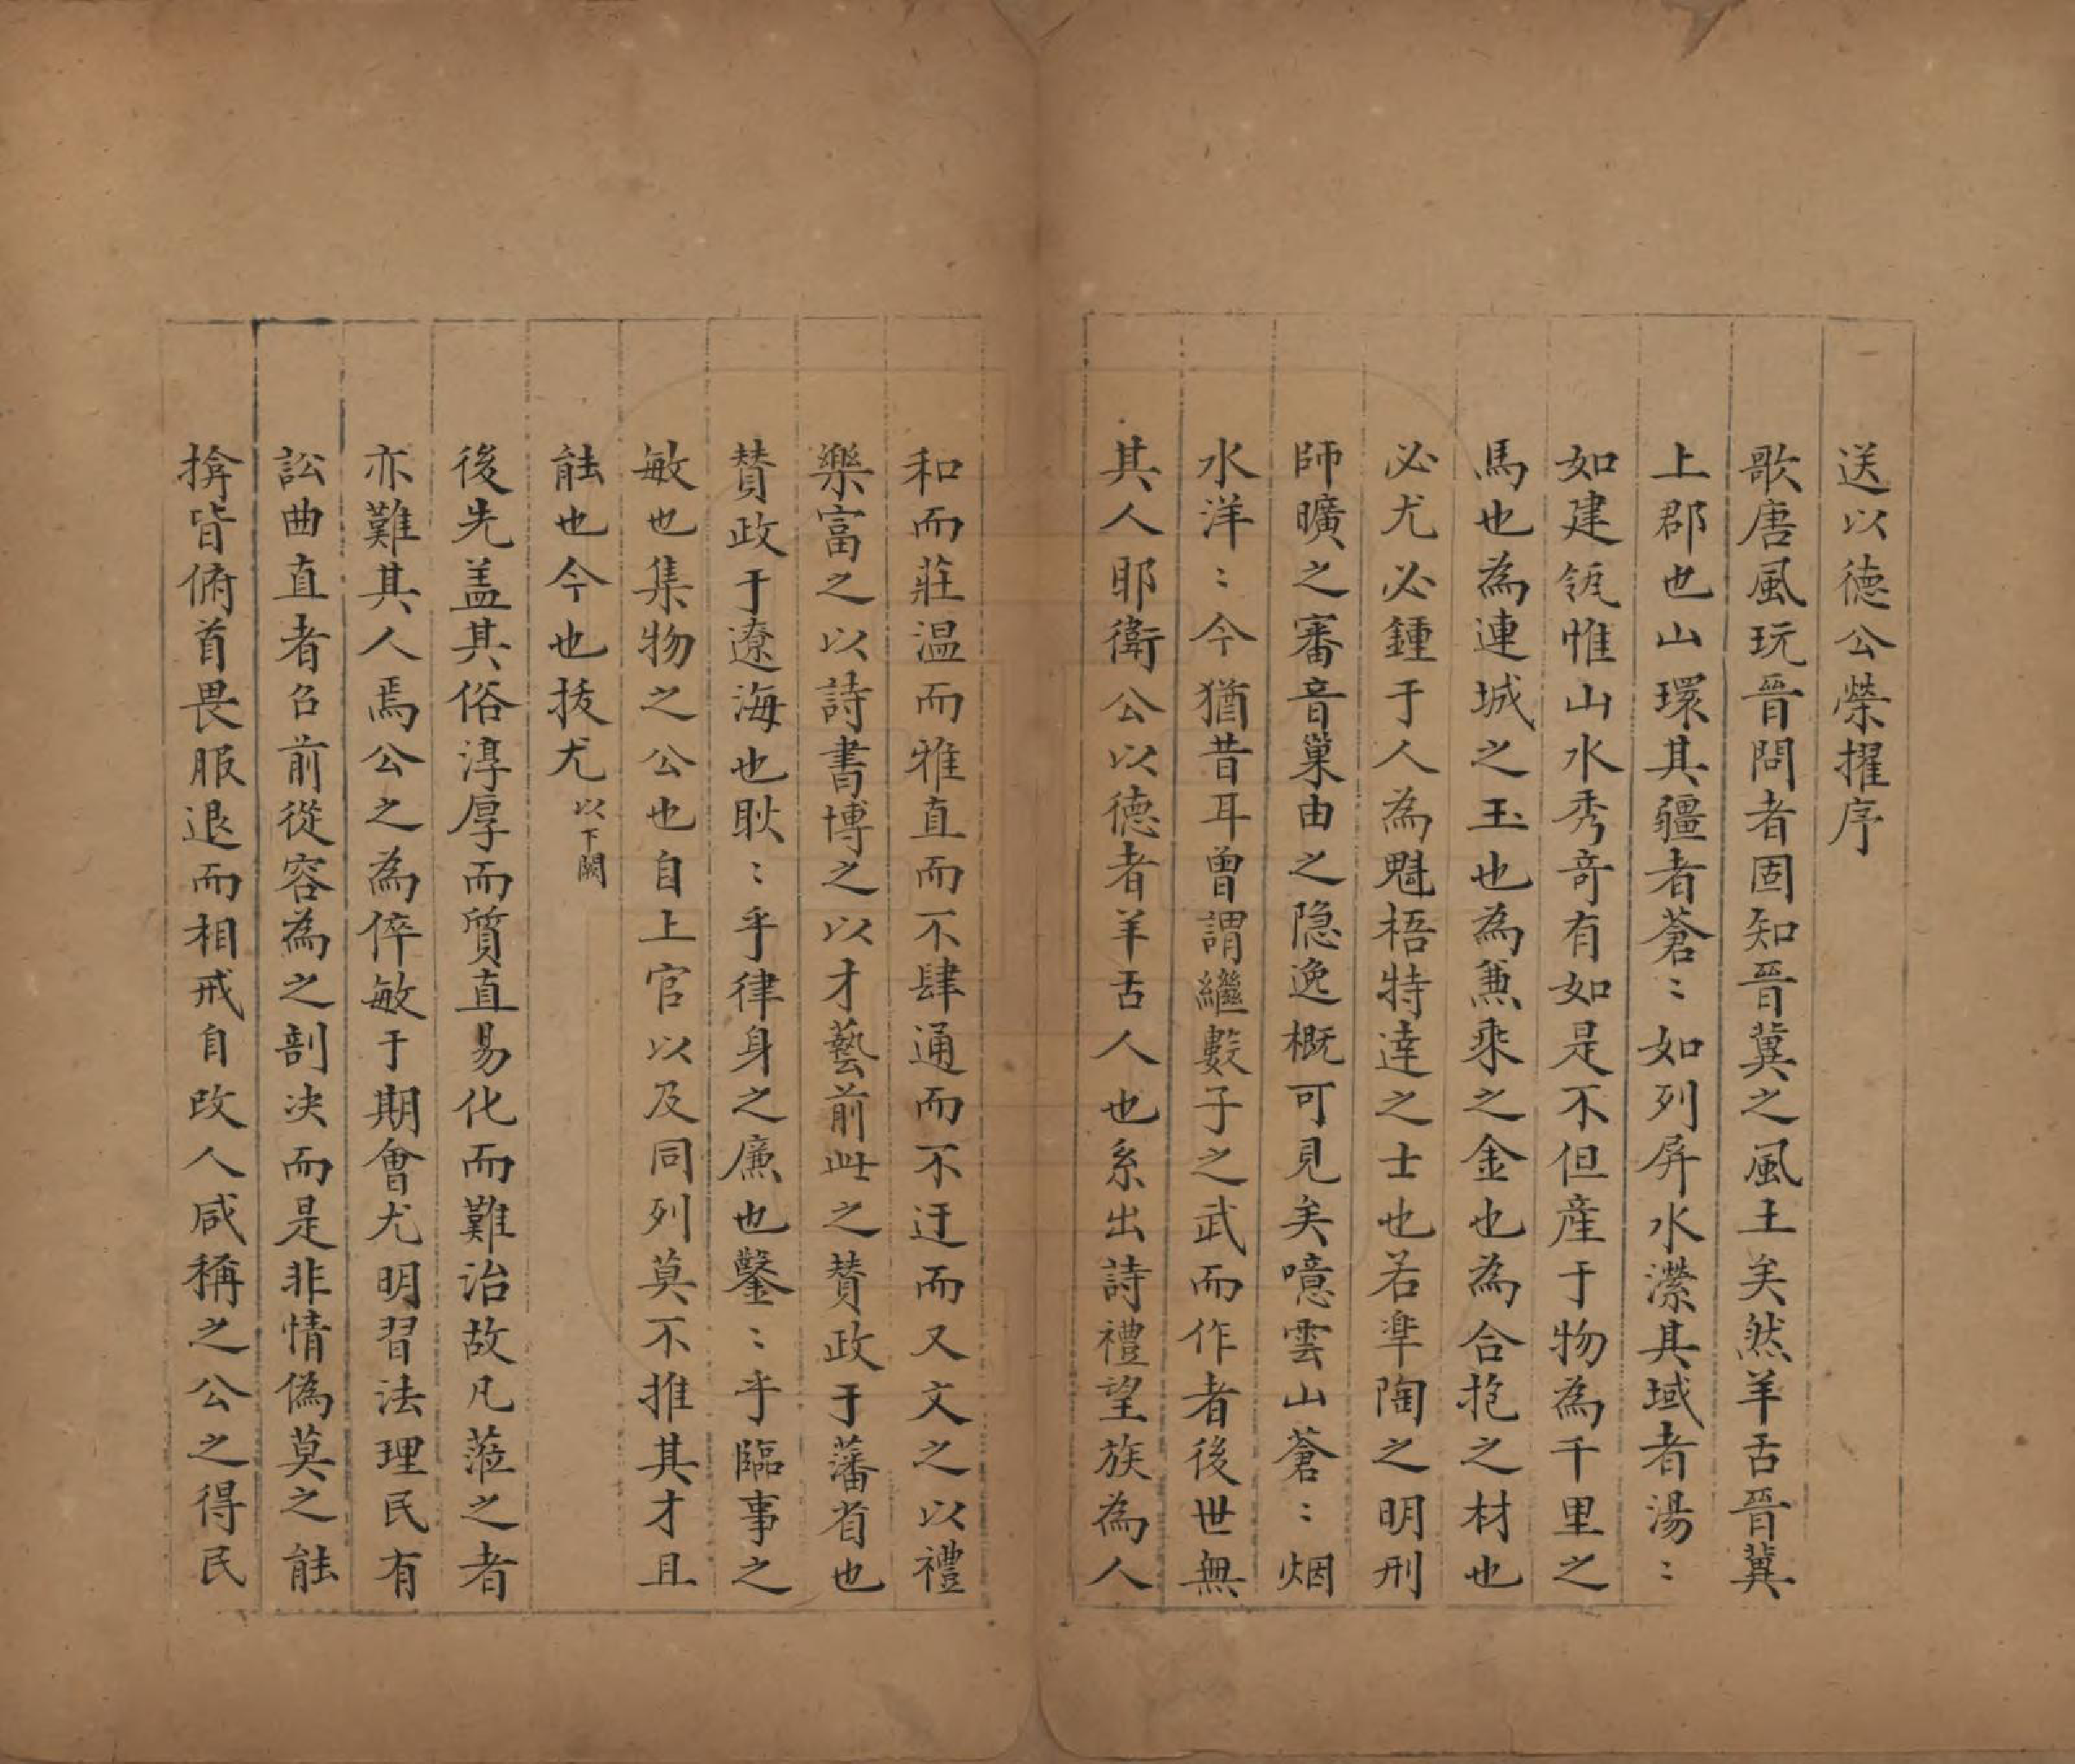 送以德公榮擢序
歌唐風玩晉問者固知晉冀之風土矣然羊舌晉冀
上郡也山環其疆者蒼〻如列屏水瀠其域者湯〻
如建瓴惟山水秀竒有如是不但産于物為千里之
馬也為連城之玉也為兼乘之金也為合抱之材也
必尤必鍾于人為魁梧特達之士也若臯陶之明刑
師曠之審音巢由之隐逸概可見矣噫雲山蒼〻烟
水洋〻今猶昔耳曾謂繼數子之武而作者後世無
其人耶衛公以德者羊舌人也系出詩禮望族為人
和而莊温而雅直而不肆通而不迂而又文之以禮
樂富之以詩書博之以才藝前此之賛政于藩省也
賛政于遼海也耿〻乎律身之廉也鑿〻乎臨事之
敏也集物之公也自上官以及同列莫不推其才且
能也今也拔尤以下闕
後先盖其俗淳厚而質直易化而難治故凡蒞之者
亦難其人焉公之為倅敏于期會尤明習法理民有
訟曲直者召前從容為之剖决而是非情偽莫之能
揜皆俯首畏服退而相戒自改人咸稱之公之得民